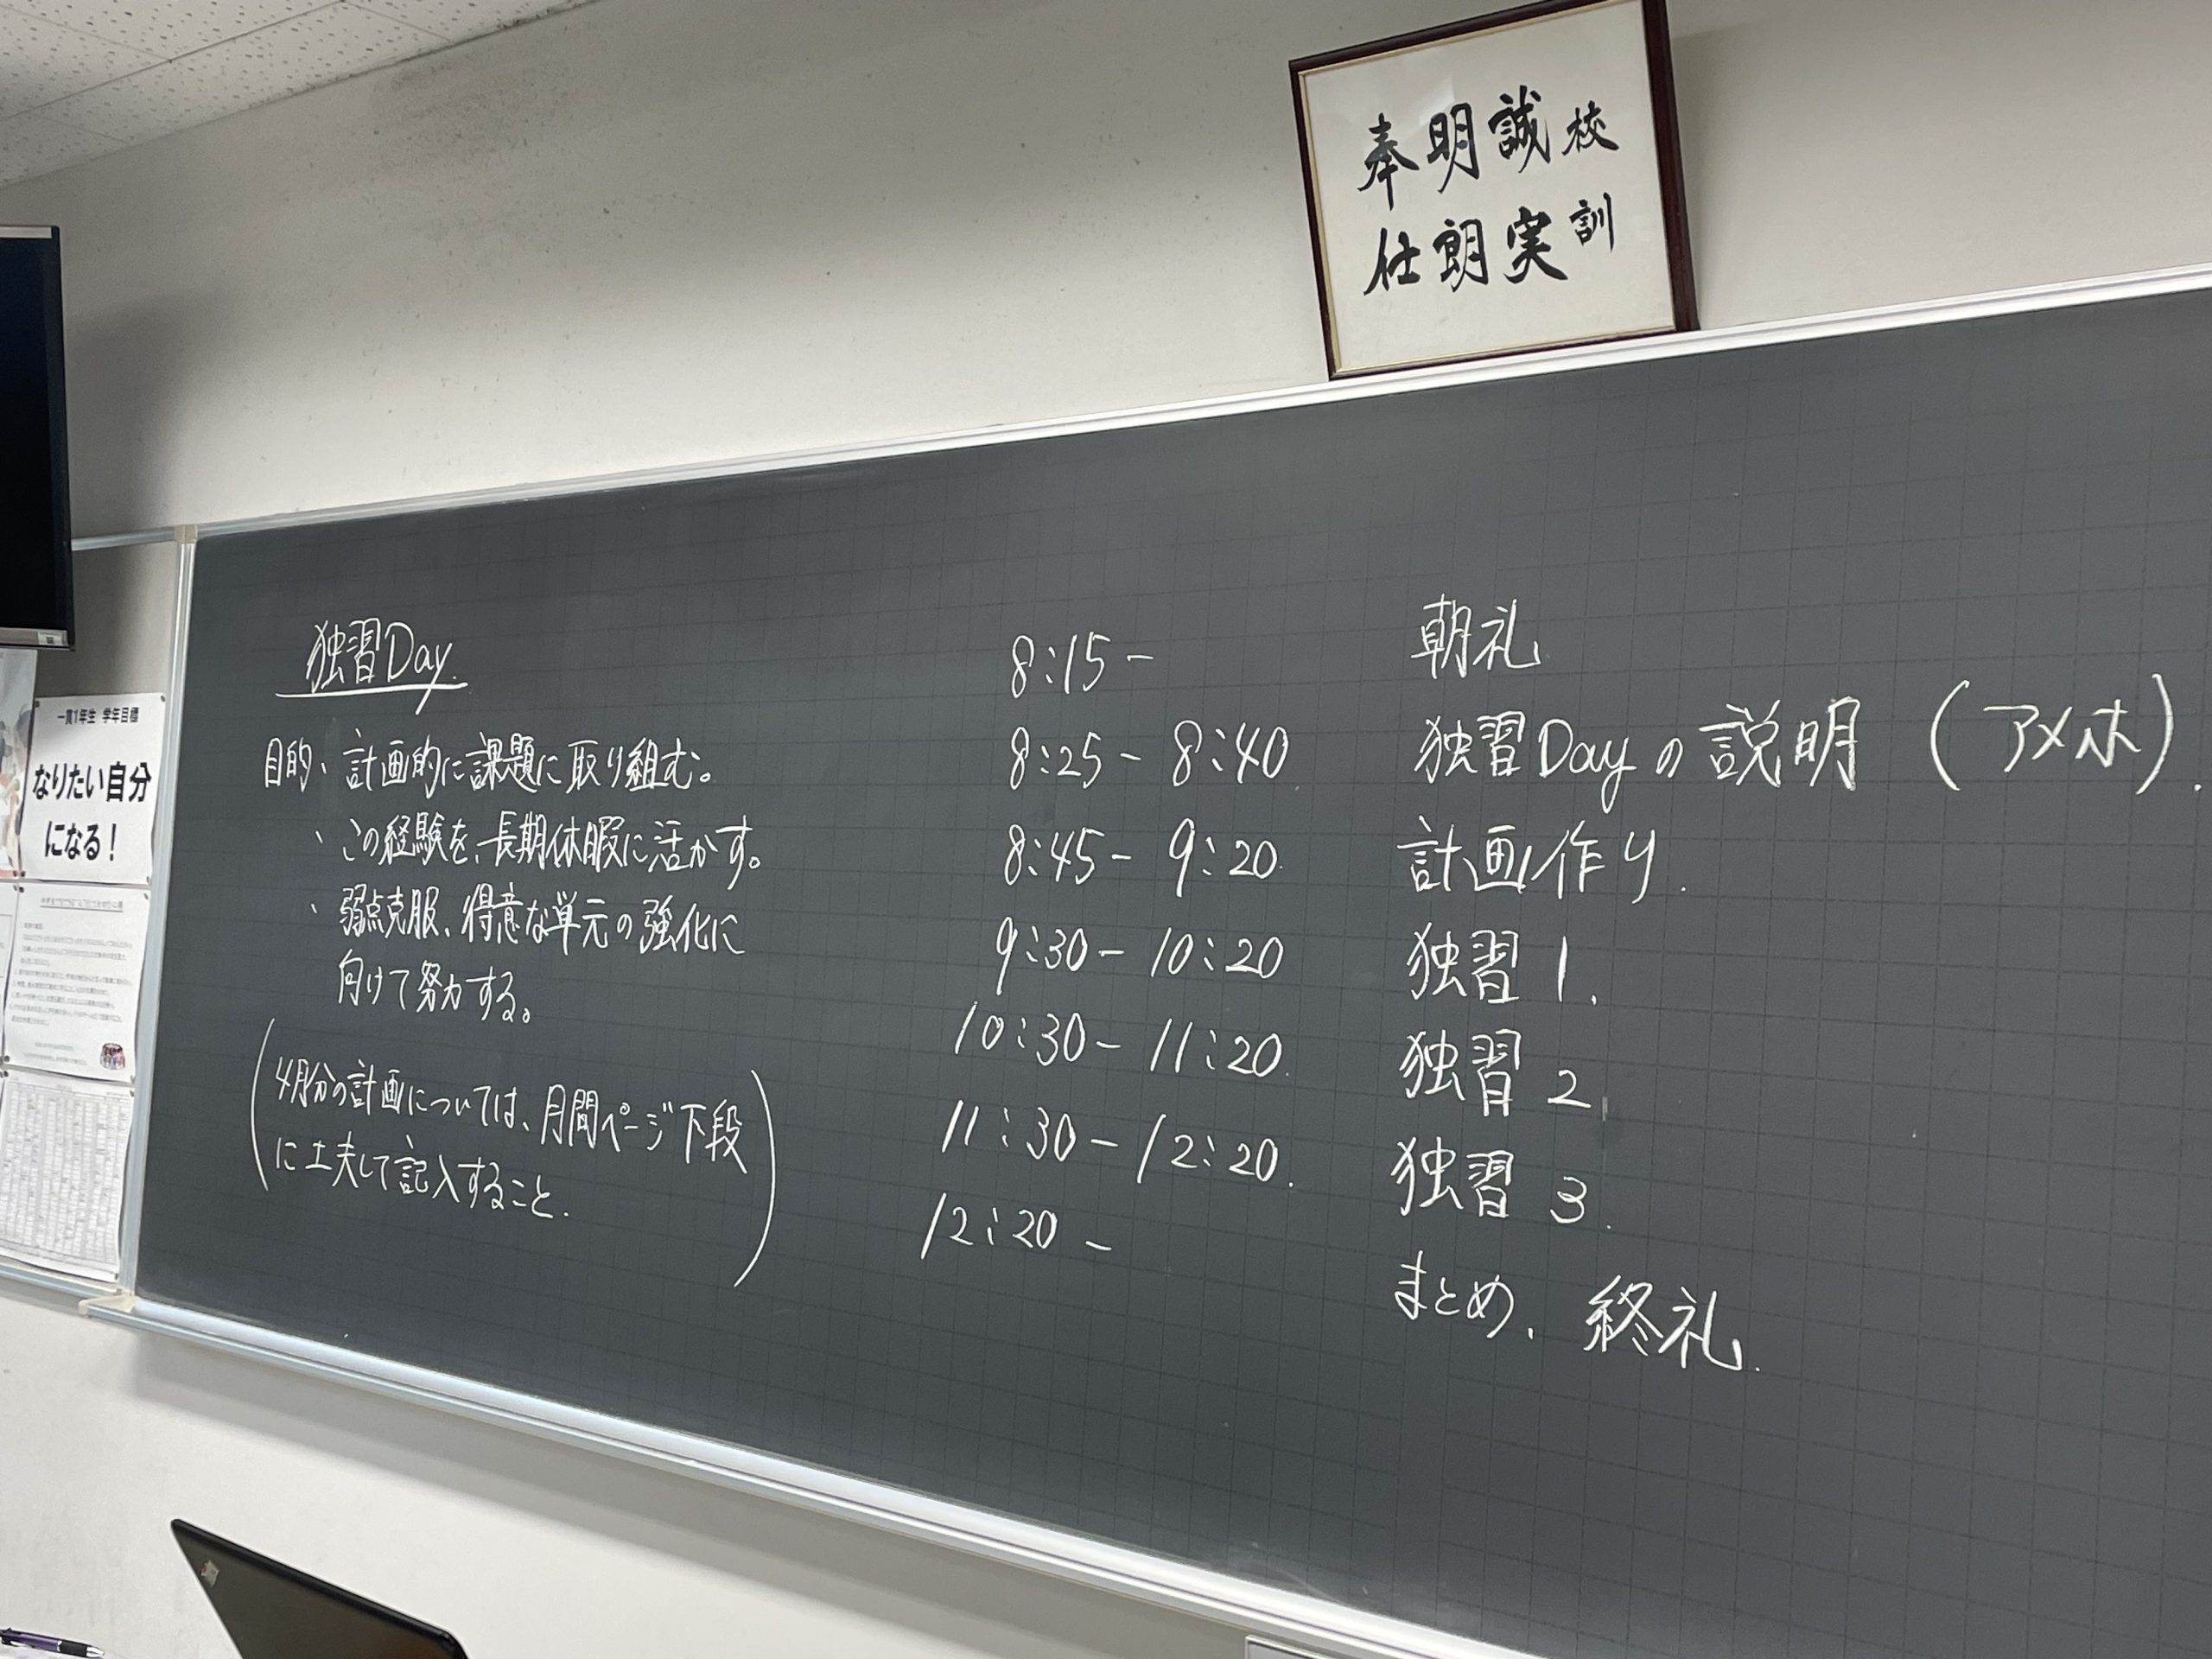 校訓
誠実
明朗
奉仕
独習Day.
目的、計画的に課題に取り組む。
、この経験を、長期休暇に活かす。
、弱点克服、得意な単元の強化に
向けて努力する。
(4月分の計画については、月間ページ下段
に工夫して記入すること.)
8:15- 朝礼
8:25-8:40. 独習Dayの説明(アメホ).
8:45-9:20. 計画作り.
9:30-10:20 独習1.
10:30-11:20. 独習2
11:30-12:20. 独習3.
12:20- まとめ、終礼.
一貫1年生 学年目標
なりたい自分
になる!